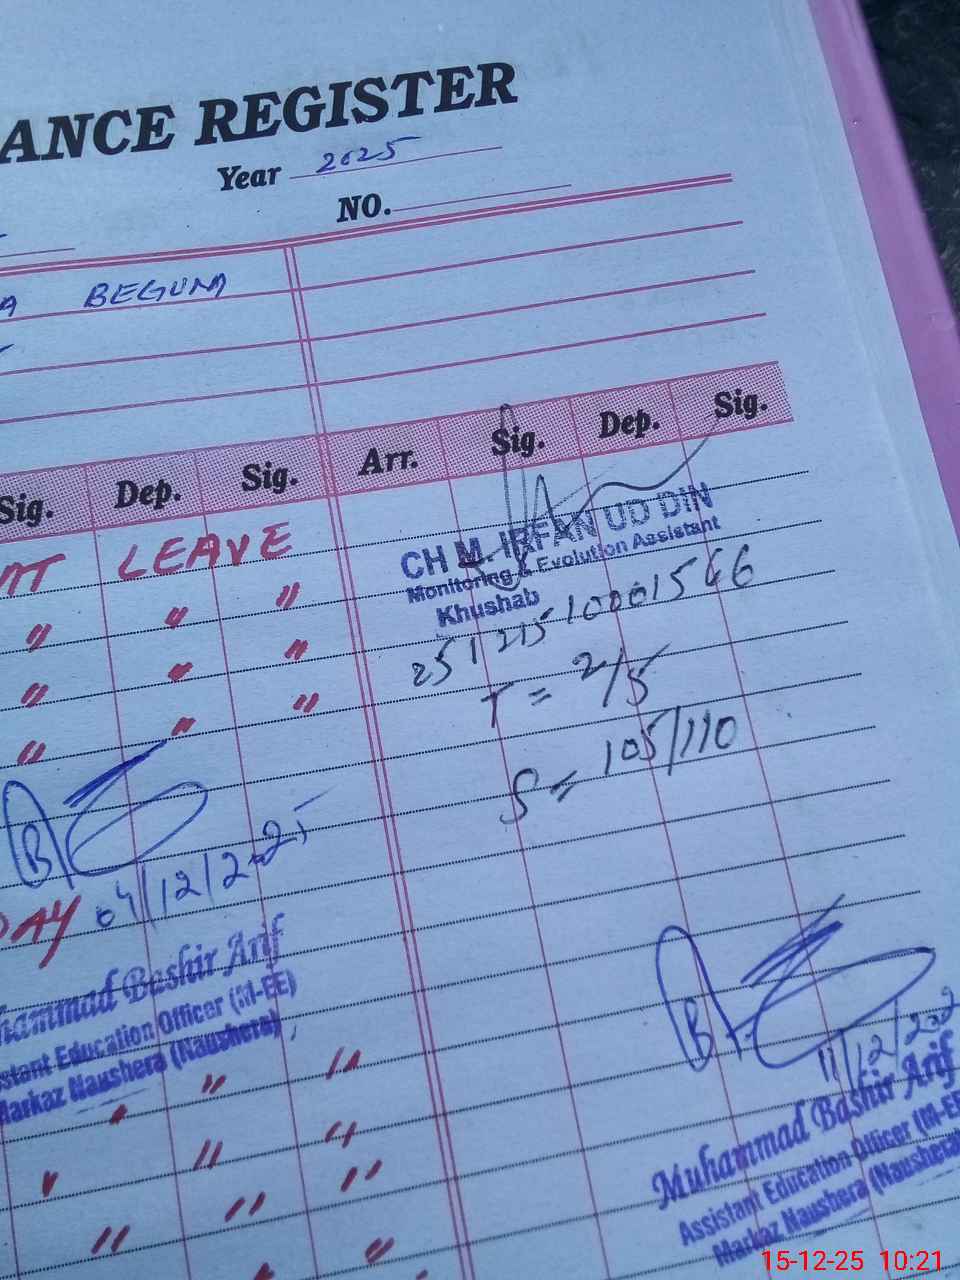 ANCE REGISTER
Year 2025
NO.
A BEGUM
Sig. Dep. Sig. Arr. Sig. Dep. Sig.
LEAVE
" " "
" " "
" " "
CH M. IRFAN UD DIN
Monitoring & Evolution Assistant
Khushab
T = 2/5
S = 105/110
04/12/2025
DAY
hammad Bashir Arif
stant Education Officer (M-EE)
Markaz Naushera (Naushera)
11/12/202
Muhammad Bashir Arif
Assistant Education Officer (M-EE
Markaz Naushera (Naushera)
15-12-25 10:21